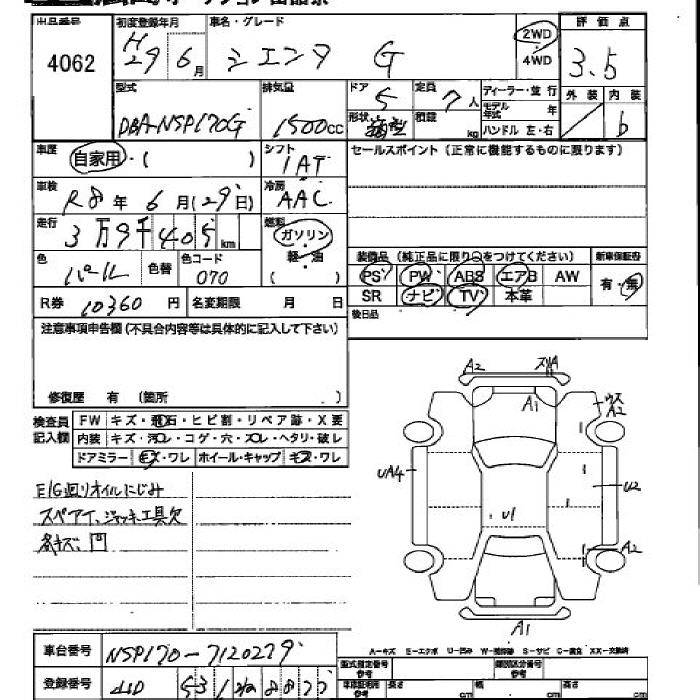 出品番号 初度登録年月 車名・グレード 評価点
4062 H29 6月 シエンタ G 2WD 4WD 3.5
型式 排気量 ドア 定員 ディーラー・並行 外装 内装
DBA-NSP170G 1500cc 5 7人 モデル年式 年 b
形状 積載 kg ハンドル 左・右
車歴 自家用・( ) シフト IAT セールスポイント(正常に機能するものに限ります)
車検 R8年6月(29日) 冷房 AAC
走行 3万9千405km 燃料 ガソリン 軽・油 ( )
色 パール 色替 色コード 070
装備品 (純正品に限り○をつけてください) 新車保証書
PS PW ABS エアB AW 有・無
SR ナビ TV 本革
R券 10360円 名変期限 月 日 後日品
注意事項申告欄(不具合内容等は具体的に記入して下さい)
修復歴 有 (箇所 )
検査員記入欄 FW キズ・飛石・ヒビ割・リペア跡・X要
内装 キズ・汚レ・コゲ・穴・スレ・ヘタリ・破レ
ドアミラー キズ・ワレ ホイール・キャップ キズ・ワレ
E/G廻りオイルにじみ
スペアタイ、ジャッキ、工具欠
各キズ、凹
A2 スリA
A1
ウス A2
UA4
U2
U1
A2
A1
車台番号 NSP170-7120279
登録番号
A-キズ E-エクボ U-凹み W-補修跡 S-サビ C-腐食 XX-交換済
型式指定番号 参考 類別区分番号 参考
長さ cm 幅 cm 高さ cm